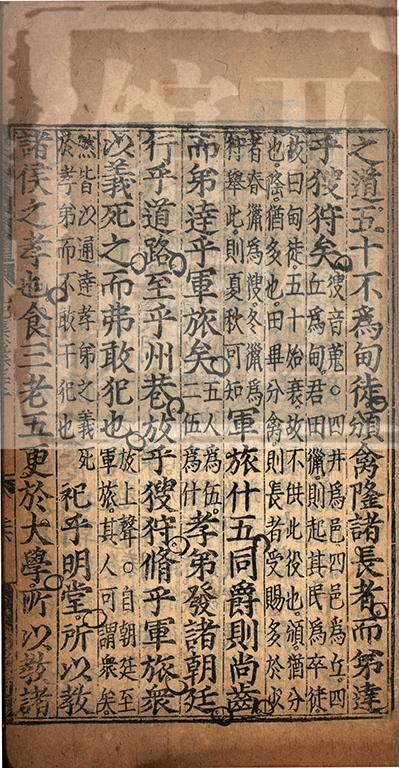 之道五十不爲甸徒頒禽隆諸長者而弟達
乎獀狩矣獀音蒐。四井爲邑四邑爲丘四丘爲甸君田獵則起其民爲卒徒
故曰甸徒五十始衰故不供此役也頒猶分也隆猶多也田畢分禽則長者受賜多於少
者春獵爲獀冬獵爲狩舉此則夏秋可知軍旅什五同爵則尚齒
而弟達乎軍旅矣五人爲伍二伍爲什孝弟發諸朝廷
行乎道路至乎州巷放乎獀狩脩乎軍旅衆
以義死之而弗敢犯也放上聲。自朝廷至軍旅其人可謂衆矣
然皆以通達孝弟之義死於孝弟而不敢干犯也祀乎明堂所以教
諸侯之孝也食三老五更於大學所以教諸